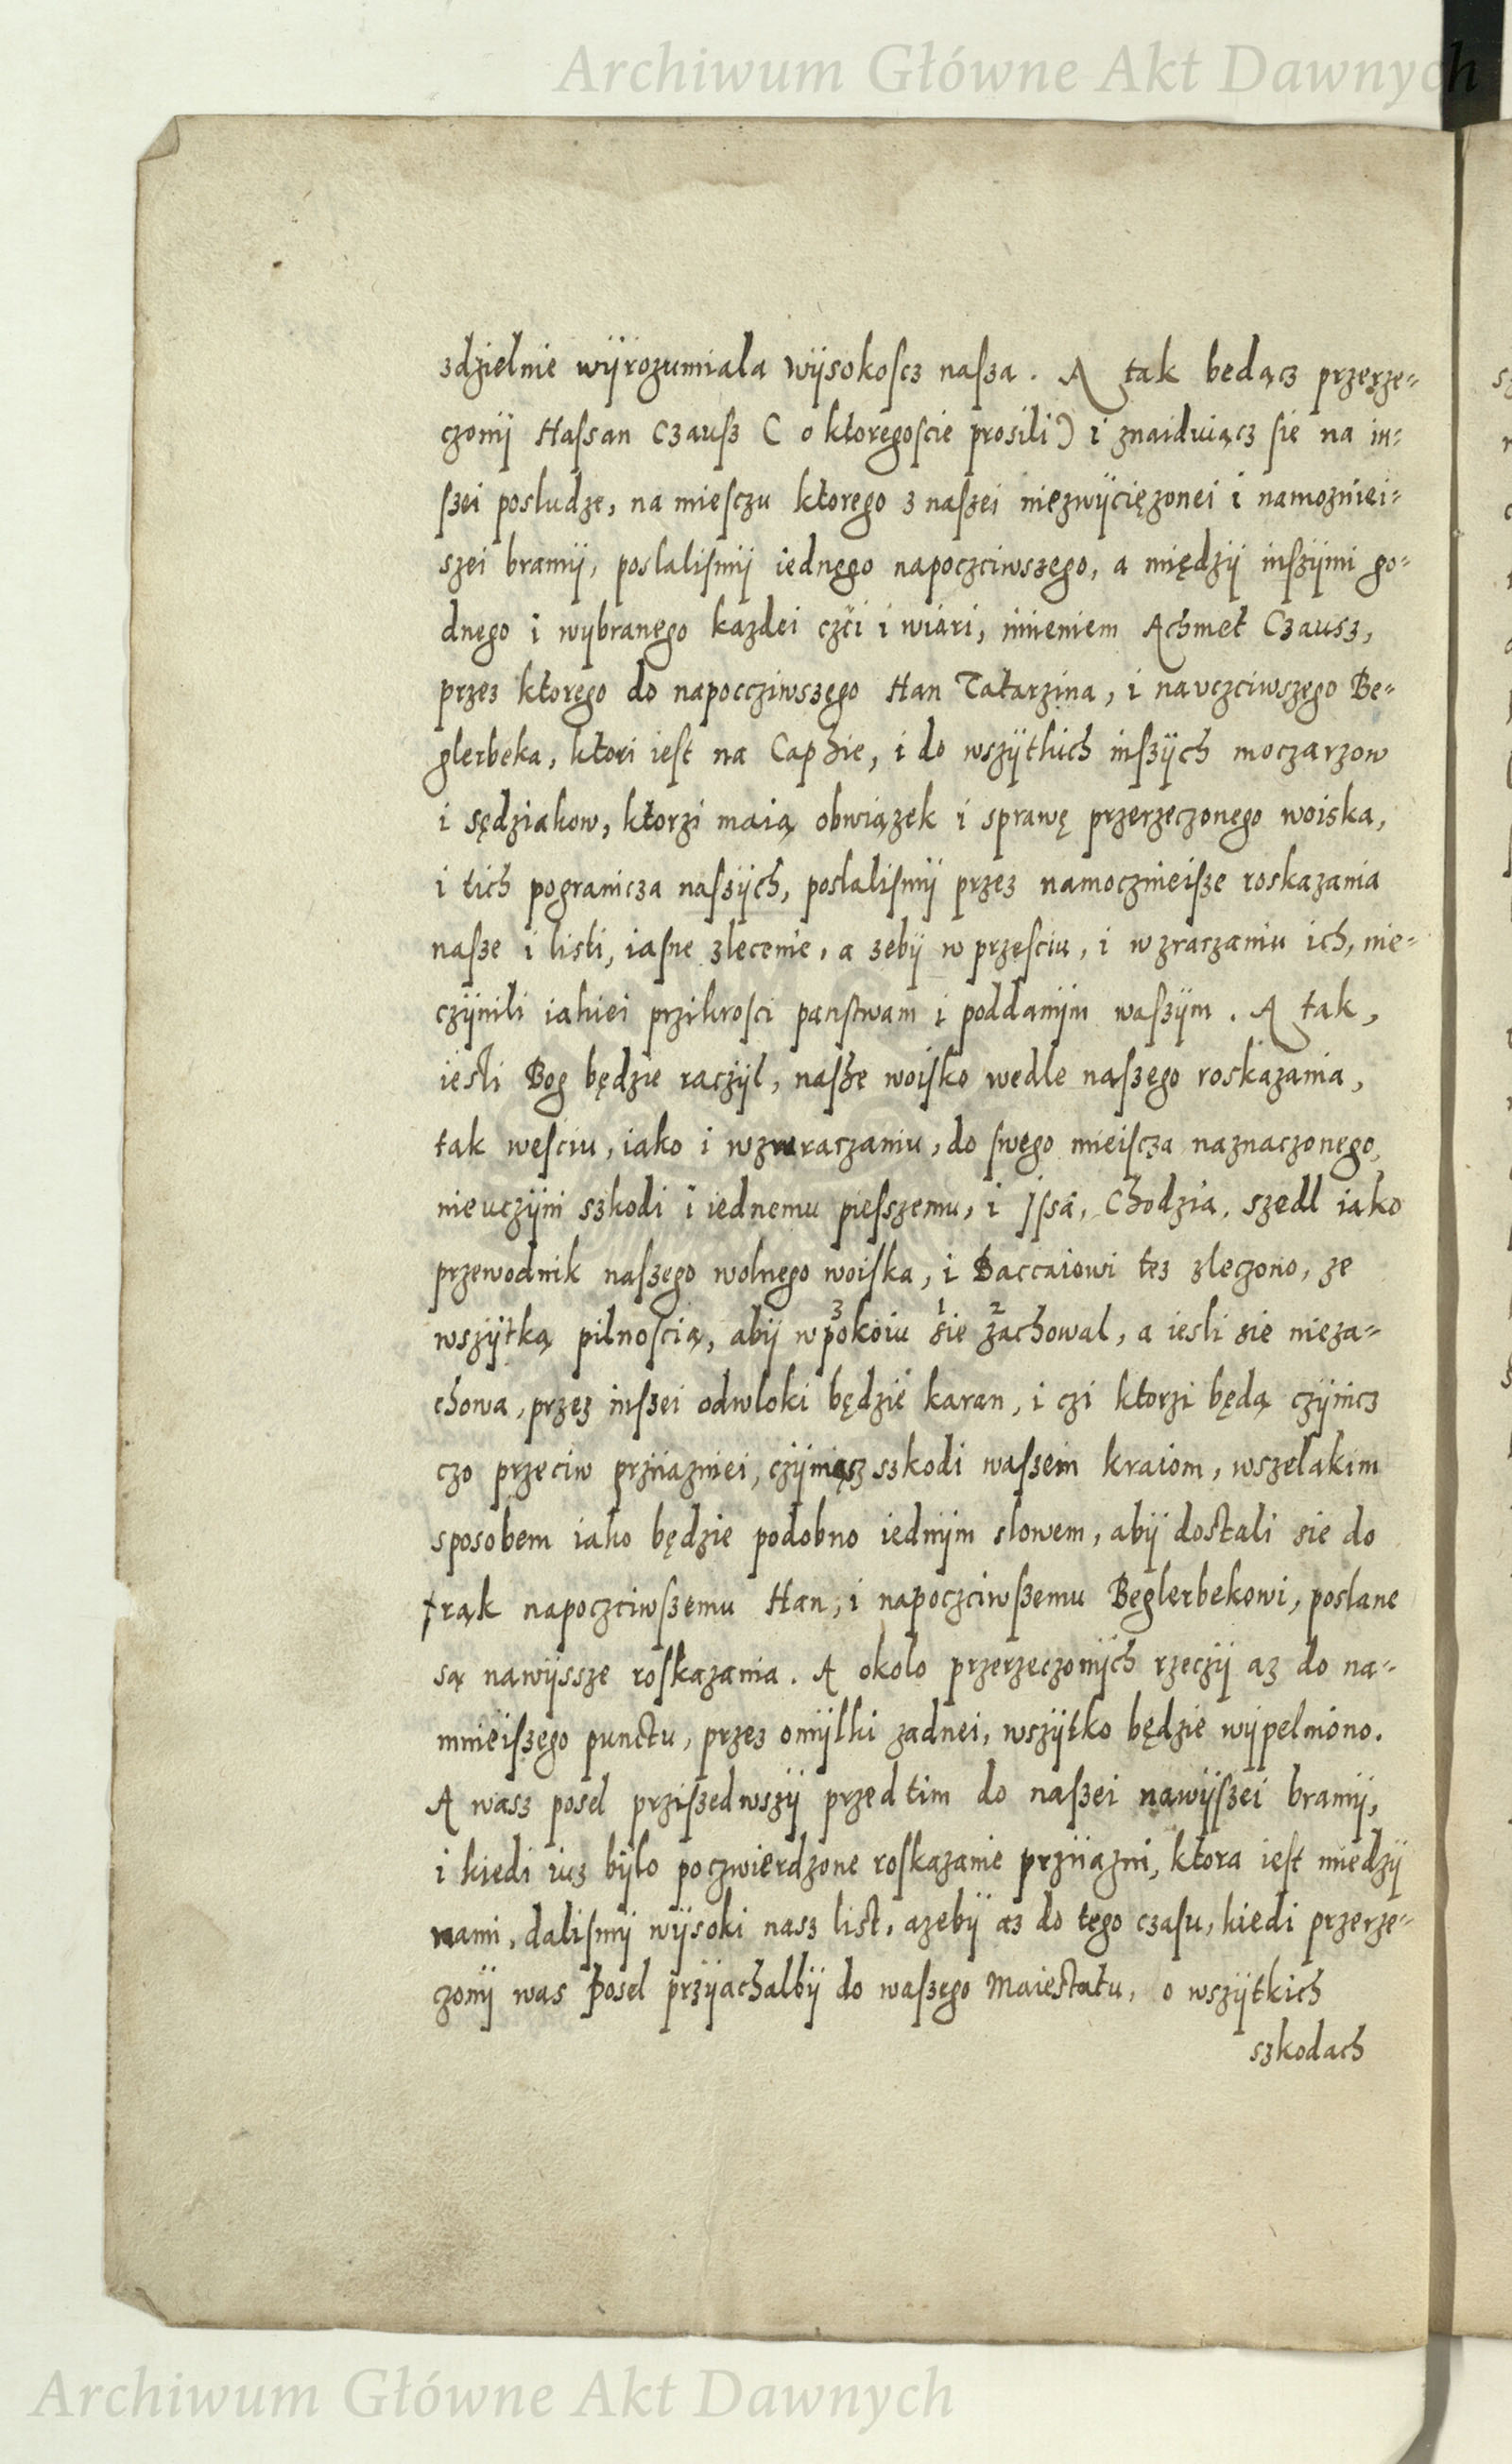 Archiwum Główne Akt Dawnych
zdzielnie wÿrozumiala wÿsokoscz nasza. A tak bedącz przerze=
czonÿ Hassan Czausz ( o ktoregoscie prosili) i znaiduiącz sie na in=
szei posludze, na miesczu ktorego z naszei niezwÿcięzonei i namozniei=
szei bramÿ, poslalismÿ iednego napoczciwszego, a międzÿ inszÿmi go=
dnego i wybranego kazdei czći i wiari, imieniem Achmet Czausz,
przez ktorego do napoccziwszego Han Tatarzina, i nauczciwszego Be=
glerbeka, ktori iest na Caphie, i do wszÿtkich inszÿch moczarzow
i sędziakow, ktorzi maią obwiązek i sprawę przerzeczonego woiska,
i tich pogranicza naszÿch, poslalismÿ przez namocznieisze roskazania
nasze i listi, iasne zlecenie, a zebÿ w przesciu, i wzraczaniu ich, nie=
czÿnili iakiei przikrosci panstwam i poddanÿm waszÿm. A tak,
iesli Bog będzie raczÿl, nasze woisko wedle naszego roskazania,
tak wesciu, iako i wzwraczaniu, do swego mieiscza naznaczonego,
nieuczÿni szkodi i iednemu piesszemu, i Jssa, Chodzia, szedl iako
przewodnik naszego wolnego woiska, i Baccaiowi tez zleczono, ze
wszÿtką pilnoscią, abÿ w 3pokoiu 1sie 2zachowal, a iesli sie nieza=
chowa, przez inszei odwloki będzie karan, i czi ktorzi będą czÿnicz
czo przeciw przÿazniei, czÿniącz szkodi waszem kraiom, wszelakim
sposobem iako będzie podobno iednÿm slowem, abÿ dostali sie do
†rąk napoczciwszemu Han, i napoczciwszemu Beglerbekowi, poslane
są nawÿssze roskazania. A okolo przerzeczonÿch rzeczÿ az do na=
mnieiszego punctu, przez omÿlki zadnei, wszÿtko będzie wÿpelniono.
A wasz posel prziszedwszÿ przed tim do naszei nawÿszei bramÿ,
i kiedi iuz bÿlo poczwierdzone roskazanie przÿazni, ktora iest miedzÿ
nami, dalismÿ wÿsoki nasz list, azebÿ az do tego czasu, kiedi przerze=
czonÿ was Posel przÿachalbÿ do waszego Maiestatu, o wszÿtkich
szkodach
Archiwum Główne Akt Dawnych